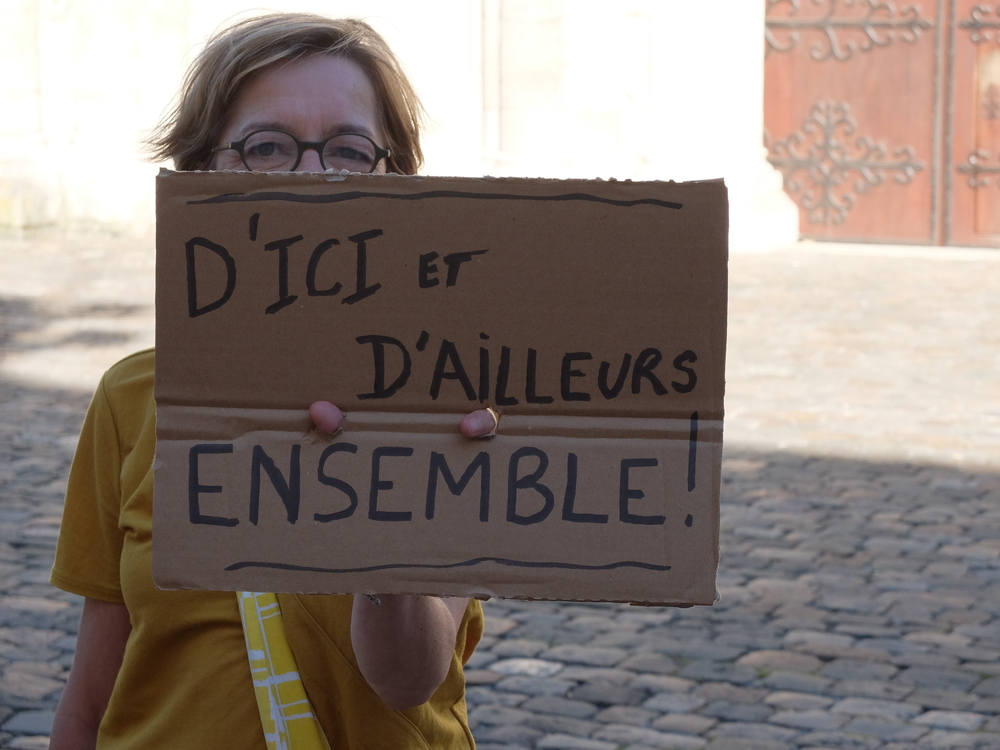 D'ICI ET
D'AiLLEURS
ENSEMBLE!